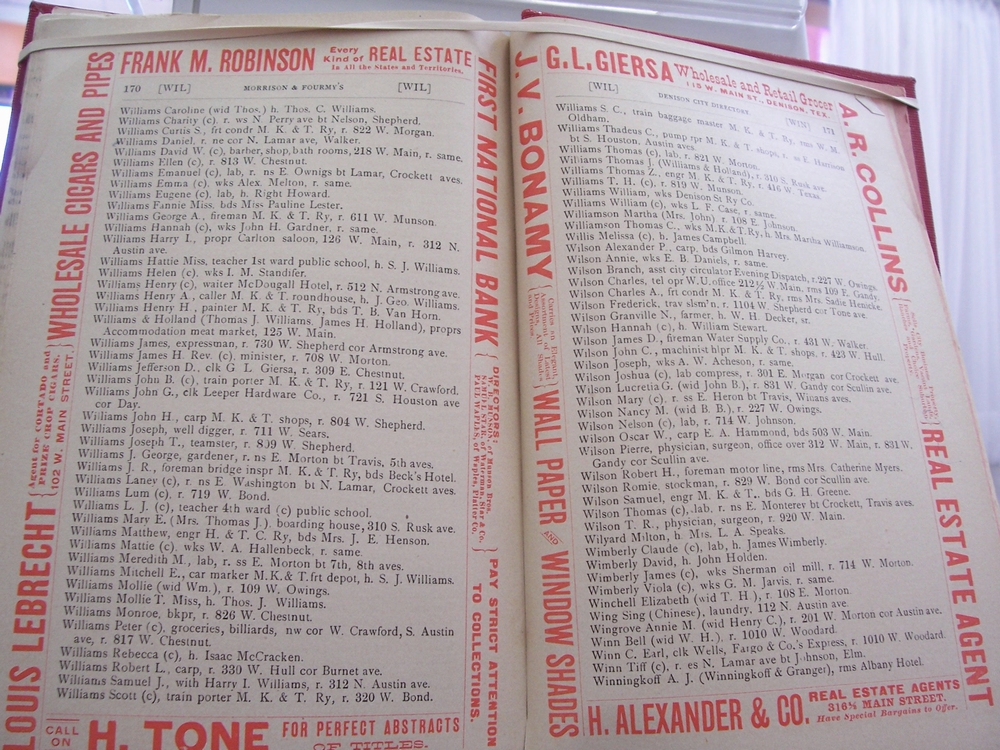 FRANK M. ROBINSON Every Kind of REAL ESTATE
In All the States and Territories.
170 [WIL] MORRISON & FOURMY'S [WIL]
Williams Caroline (wid Thos.) h. Thos. C. Williams.
Williams Charity (c). r. ws N. Perry ave bt Nelson, Shepherd.
Williams Curtis S., frt condr M. K. & T. Ry, r. 822 W. Morgan.
Williams Daniel, r. ne cor N. Lamar ave, Walker.
Williams David W. (c), barber, shop, bath rooms, 218 W. Main, r. same.
Williams Ellen (c). r. 813 W. Chestnut.
Williams Emanuel (c), lab, r. ns E. Ownigs bt Lamar, Crockett aves.
Williams Emma (c), wks Alex. Melton, r. same.
Williams Eugene (c), lab, h. Right Howard.
Williams Fannie Miss, bds Miss Pauline Lester.
Williams George A., fireman M. K. & T. Ry, r. 611 W. Munson.
Williams Hannah (c), wks John H. Gardner, r. same.
Williams Harry I., propr Carlton saloon, 126 W. Main, r. 312 N.
Austin ave.
Williams Hattie Miss, teacher 1st ward public school, h. S. J. Williams.
Williams Helen (c), wks I. M. Standifer.
Williams Henry (c), waiter McDougall Hotel, r. 512 N. Armstrong ave.
Williams Henry A., caller M. K. & T. roundhouse, h. J. Geo. Williams.
Williams Henry H., painter M. K. & T. Ry, bds T. B. Van Horn.
Williams & Holland (Thomas J. Williams, James H. Holland), proprs
Accommodation meat market, 125 W. Main.
Williams James, expressman, r. 730 W. Shepherd cor Armstrong ave.
Williams James H. Rev. (c), minister, r. 708 W. Morton.
Williams Jefferson D., clk G. L. Giersa, r. 309 E. Chestnut.
Williams John B. (c), train porter M. K. & T. Ry, r. 121 W. Crawford.
Williams John G., clk Leeper Hardware Co., r. 721 S. Houston ave
cor Day.
Williams John H., carp M. K. & T. shops, r. 804 W. Shepherd.
Williams Joseph, well digger, r. 711 W. Sears.
Williams Joseph T., teamster, r. 809 W. Shepherd.
Williams J. George, gardener, r. ns E. Morton bt Travis, 5th aves.
Williams J. R., foreman bridge inspr M. K. & T. Ry, bds Beck's Hotel.
Williams Laney (c), r. ns E. Washington bt N. Lamar, Crockett aves.
Williams Lum (c). r. 719 W. Bond.
Williams L. J. (c), teacher 4th ward (c) public school.
Williams Mary E. (Mrs. Thomas J.). boarding house, 310 S. Rusk ave.
Williams Matthew, engr H. & T. C. Ry, bds Mrs. J. E. Henson.
Williams Mattie (c). wks W. A. Hallenbeck, r. same.
Williams Meredith M., lab, r. ss E. Morton bt 7th, 8th aves.
Williams Mitchell E., car marker M.K.& T. frt depot, h. S. J. Williams.
Williams Mollie (wid Wm.), r. 109 W. Owings.
Williams Mollie T. Miss, h. Thos. J. Williams.
Williams Monroe, bkpr, r. 826 W. Chestnut.
Williams Peter (c), groceries, billiards, nw cor W. Crawford, S. Austin
ave, r. 817 W. Chestnut.
Williams Rebecca (c), h. Isaac McCracken.
Williams Robert L., carp, r. 330 W. Hull cor Burnet ave.
Williams Samuel J., with Harry I. Williams, r. 312 N. Austin ave.
Williams Scott (c), train porter M. K. & T. Ry, r. 320 W. Bond.
CALL ON H. TONE FOR PERFECT ABSTRACTS
OF TITLES.
LOUIS LEBRECHT
Agent for CORTADO and
PRIZE CROP CIGARS.
102 W. MAIN STREET.
WHOLESALE CIGARS AND PIPES
FIRST NATIONAL BANK
DIRECTORS:
PAY STRICT ATTENTION
TO COLLECTIONS.
G. L. GIERSA Wholesale and Retail Grocer
115 W. MAIN ST., DENISON, TEX.
[WIL] DENISON CITY DIRECTORY. [WIN] 171
Williams S. C., train baggage master M. K. & T. Ry, rms W. M.
Oldham.
Williams Thadeus C., pump rpr M. K. & T. shops, r. ss E. Harrison
bt S. Houston, Austin aves.
Williams Thomas (c), lab, r. 821 W. Morton.
Williams Thomas J. (Williams & Holland), r. 310 S. Rusk ave.
Williams Thomas Z., engr M. K. & T. Ry, r. 416 W. Texas.
Williams T. H. (c), r. 819 W. Munson.
Williams William, wks Denison St Ry Co.
Williams William (c), wks L. F. Case, r. same.
Williamson Martha (Mrs. John) r. 108 E. Johnson.
Williamson Thomas C., wks M.K.& T. Ry, h. Mrs. Martha Williamson.
Willis Melissa (c), h. James Campbell.
Wilson Alexander P., carp. bds Gilmon Harvey.
Wilson Annie, wks E. B. Daniels, r. same.
Wilson Branch, asst city circulator Evening Dispatch, r. 227 W. Owings.
Wilson Charles, tel opr W.U. office 212½ W. Main, rms 109 E. Gandy.
Wilson Charles A., frt condr M. K. & T. Ry, rms Mrs. Sadie Henicke.
Wilson Frederick, trav slsm'n, r. 1104 W. Shepherd cor Tone ave.
Wilson Granville N., farmer, h. W. H. Decker, sr.
Wilson Hannah (c), h. William Stewart.
Wilson James D., fireman Water Supply Co., r. 431 W. Walker.
Wilson John C., machinist hlpr M. K. & T. shops, r. 423 W. Hull.
Wilson Joseph, wks A. W. Acheson, r. same.
Wilson Joshua (c), lab compress, r. 301 E. Morgan cor Crockett ave.
Wilson Lucretia G. (wid John B.), r. 831 W. Gandy cor Scullin ave.
Wilson Mary (c). r. ss E. Heron bt Travis, Wituans aves.
Wilson Nancy M. (wid B. B.), r. 227 W. Owings.
Wilson Nelson (c), lab, r. 714 W. Johnson.
Wilson Oscar W., carp E. A. Hammond, bds 503 W. Main.
Wilson Pierre, physician, surgeon, office over 312 W. Main, r. 831 W.
Gandy cor Scullin ave.
Wilson Robert H., foreman motor line, rms Mrs. Catherine Myers.
Wilson Romie, stockman, r. 829 W. Bond cor Scullin ave.
Wilson Samuel, engr M. K. & T., bds G. H. Greene.
Wilson Thomas (c), lab, r. ns E. Monterey bt Crockett, Travis aves.
Wilson T. R., physician, surgeon, r. 920 W. Main.
Wilyard Milton, h. Mis. L. A. Speaks.
Wimberly Claude (c), lab, h. James Wimberly.
Wimberly David, h. John Holden.
Wimberly James (c), wks Sherman oil mill, r. 714 W. Morton.
Wimberly Viola (c), wks G. M. Jarvis, r. same.
Winchell Elizabeth (wid T. H.), r. 108 E. Morton.
Wing Sing (Chinese), laundry. 112 N. Austin ave.
Wingrove Annie M. (wid Henry C.), r. 201 W. Morton cor Austin ave.
Winn Bell (wid W. H.). r. 1010 W. Woodard.
Winn C. Earl, clk Wells, Fargo & Co.'s Express, r. 1010 W. Woodard.
Winn Tiff (c), r. es N. Lamar ave bt Johnson, Elm.
Winningkoff A. J. (Winningkoff & Granger), rms Albany Hotel.
H. ALEXANDER & CO. REAL ESTATE AGENTS
316½ MAIN STREET.
Have Special Bargains to Offer.
J. V. BONAMY
Carries an Elegant
Assortment of Latest
Designs, All Shades
and Prices
WALL PAPER AND WINDOW SHADES
A. R. COLLINS
REAL ESTATE AGENT